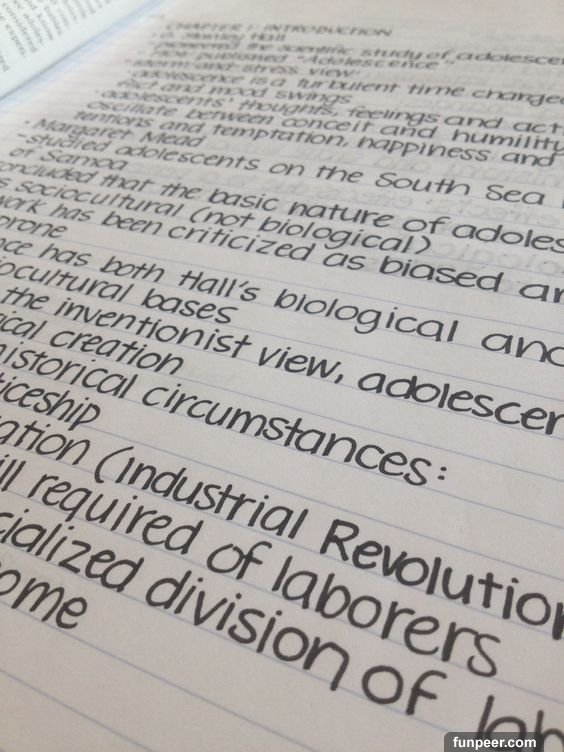 CHAPTER 1: INTRODUCTION
G. Stanley Hall
-pioneered the scientific study of adolescen
published "Adolescence",
-storm-and-stress view:
-adolescence is a turbulent time charged
and mood swings
-adolescents' thoughts, feelings and act
oscillate between conceit and humility
tentions and temptation, happiness and
Margaret Mead
-studied adolescents on the South Sea
of Samoa
oncluded that the basic nature of adoles
s sociocultural (not biological)
work has been criticized as biased an
prone
nce has both Hall's biological and
iocultural bases
the inventionist view, adolescen
ical creation
historical circumstances:
ticeship
ation (Industrial Revolution
ill required of laborers
cialized division of lab
ome
funpeer.com